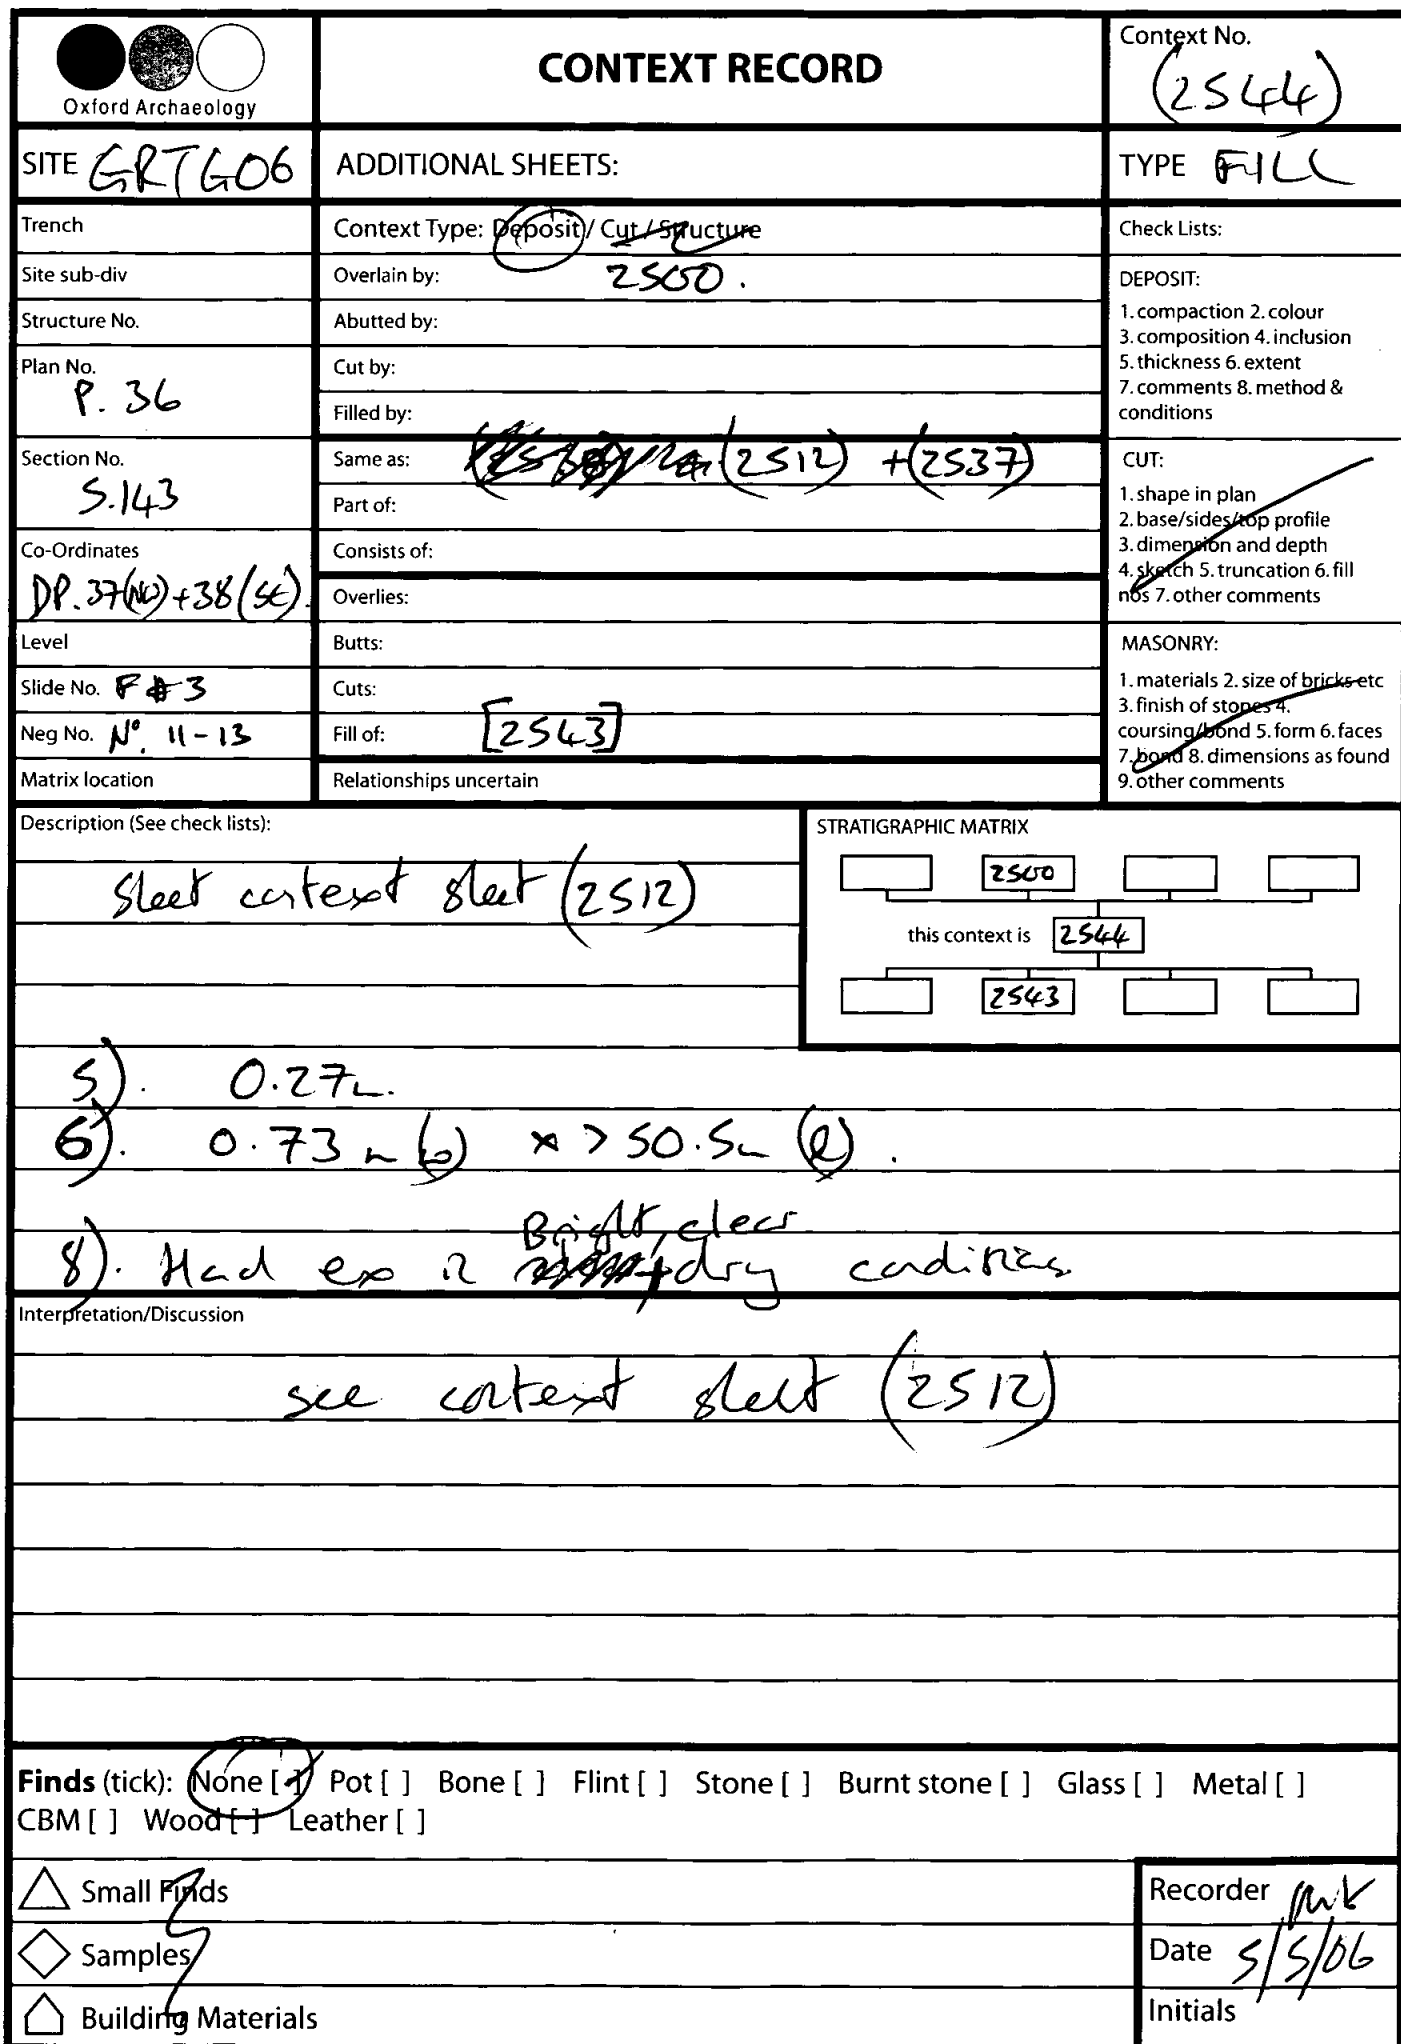 Oxford Archaeology
CONTEXT RECORD
Context No.
(2544)
SITE GRTG06
ADDITIONAL SHEETS:
TYPE FILL
Trench
Site sub-div
Structure No.
Plan No.
P. 36
Section No.
S.143
Co-Ordinates
DP. 37(NW)+38(SE).
Level
Slide No. F #3
Neg No. Nº. 11-13
Matrix location
Context Type: Deposit / Cut / Structure
Overlain by: 2500.
Abutted by:
Cut by:
Filled by:
Same as: (2512) +(2537)
Part of:
Consists of:
Overlies:
Butts:
Cuts:
Fill of: [2543]
Relationships uncertain
Check Lists:
DEPOSIT:
1. compaction 2. colour
3. composition 4. inclusion
5. thickness 6. extent
7. comments 8. method &
conditions
CUT:
1. shape in plan
2. base/sides/top profile
3. dimension and depth
4. sketch 5. truncation 6. fill
nos 7. other comments
MASONRY:
1. materials 2. size of bricks etc
3. finish of stones 4.
coursing/bond 5. form 6. faces
7. bond 8. dimensions as found
9. other comments
Description (See check lists):
Sheet context sheet (2512)
STRATIGRAPHIC MATRIX
2500
this context is 2544
2543
5). 0.27m.
6). 0.73m (b) x > 50.5m (l).
Bright, clear
8). Hand ex in + dry conditions
Interpretation/Discussion
see context sheet (2512)
Finds (tick): None [✓] Pot [ ] Bone [ ] Flint [ ] Stone [ ] Burnt stone [ ] Glass [ ] Metal [ ]
CBM [ ] Wood [ ] Leather [ ]
Small Finds
Samples
Building Materials
Recorder
Date 5/5/06
Initials